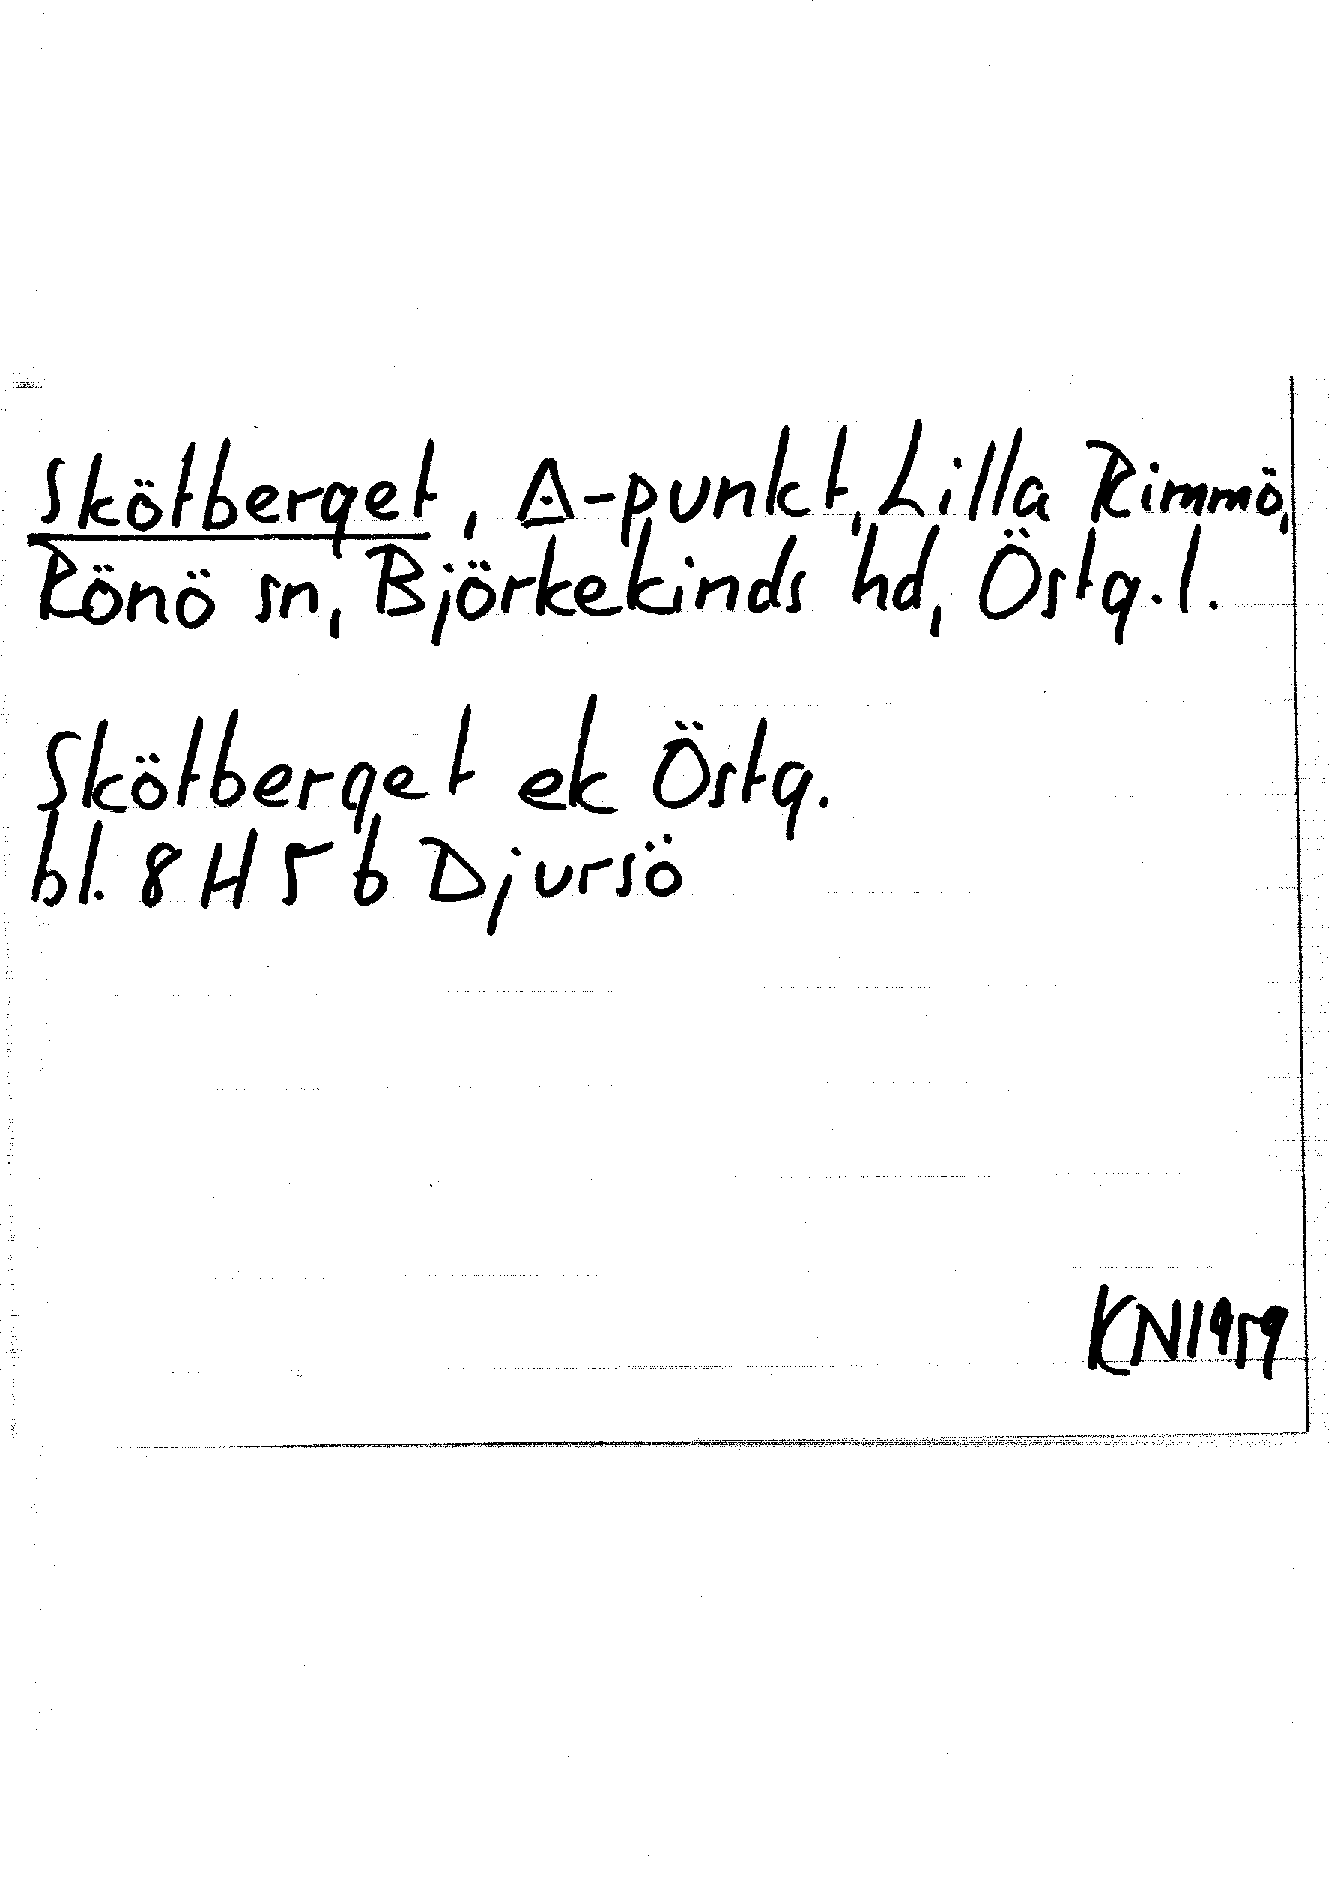 Skötberget, △-punkt, Lilla Rimmö,
Rönö sn, Björkekinds hd, Östg.l.
Skötberget ek Östg.
bl. 8 H 5 b Djursö
KN1959